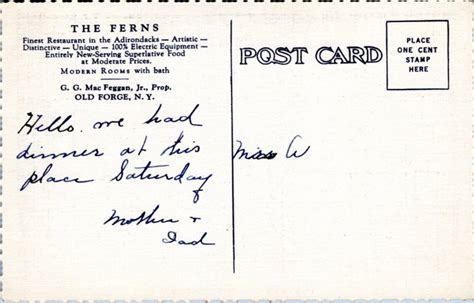 THE FERNS
Finest Restaurant in the Adirondacks — Artistic –
Distinctive — Unique — 100% Electric Equipment —
Entirely New-Serving Superlative Food
at Moderate Prices.
MODERN ROOMS with bath
G. G. Mac Feggan, Jr., Prop.
OLD FORGE, N. Y.
Hello. we had
dinner at this
place Saturday
Mother +
Dad
POST CARD
PLACE
ONE CENT
STAMP
HERE
Miss W